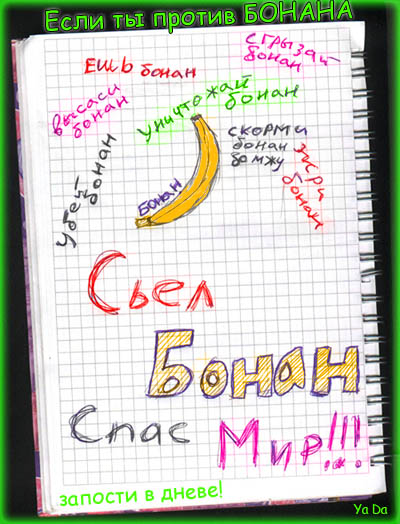 Если ты против БОНАНА
Ешь бонан
сгрызай
бонан
высаси
бонан
Уничтожай
бонан
скорми
бонан
бомжу
Убей
бонан
жри
бонан
Бонан
Сьел
Бонан
Спас
Мир!!!
запости в дневе!
Ya Da